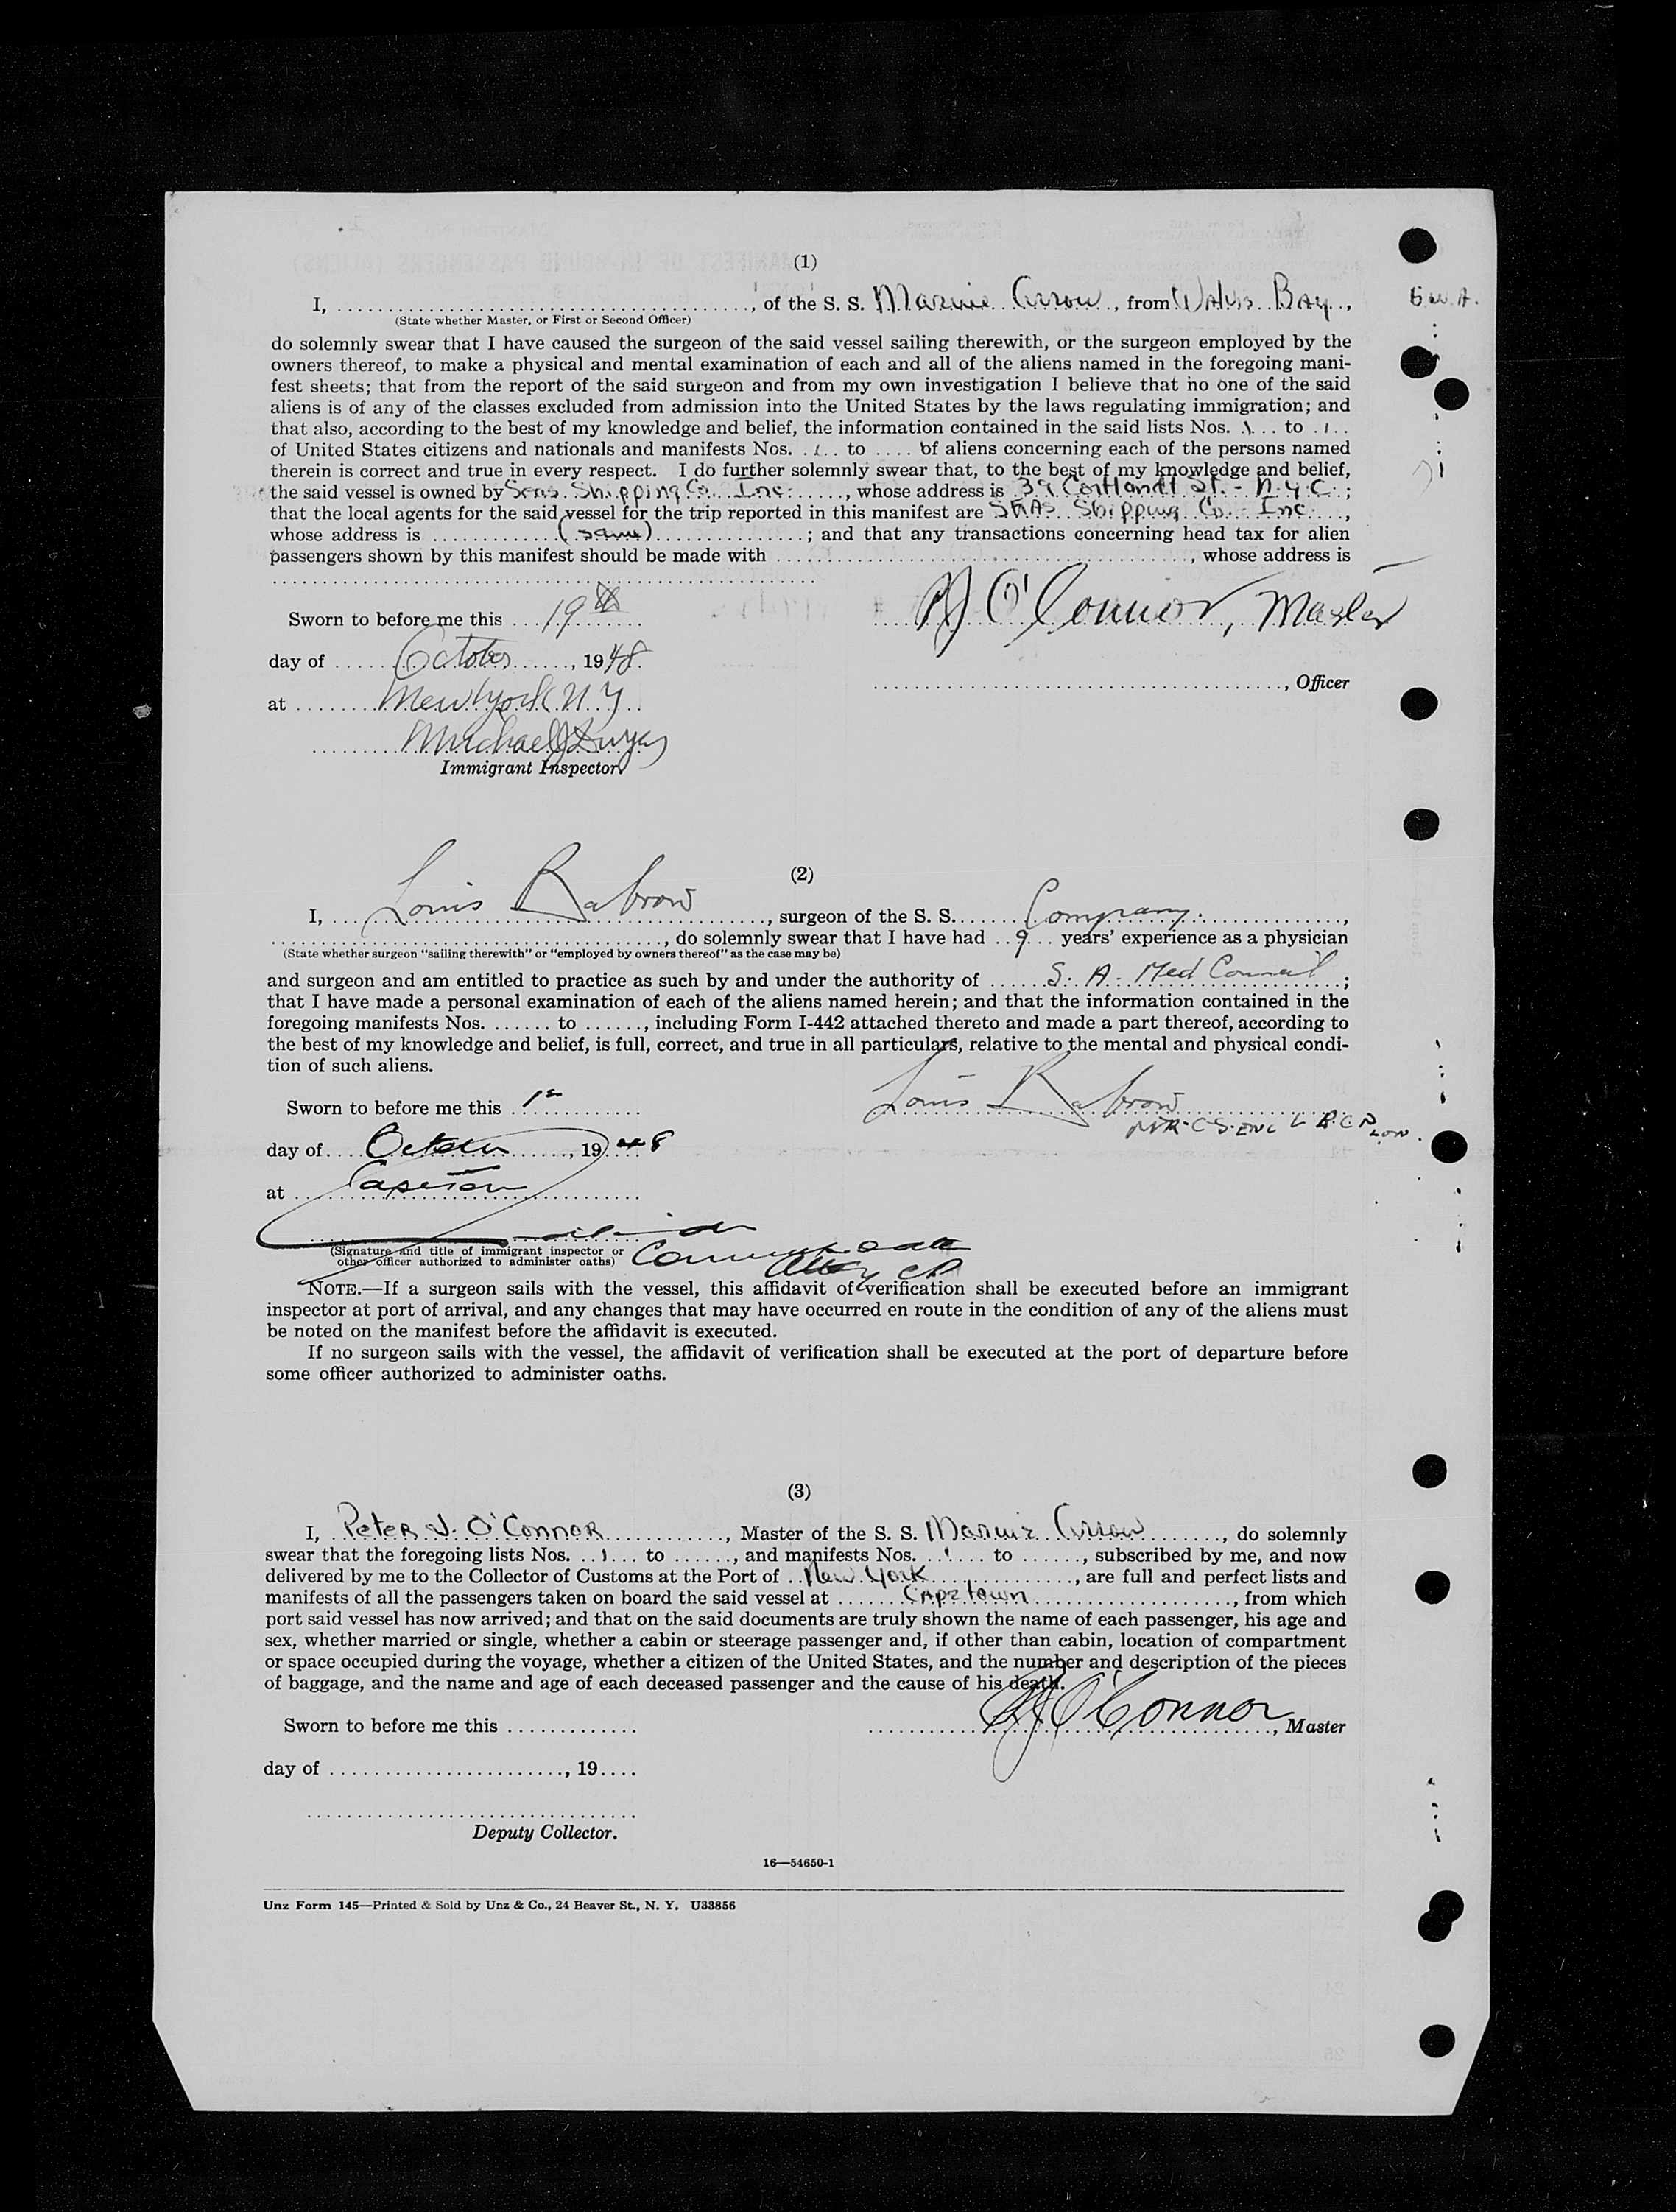 (1)
I, ........................................, of the S. S. Marine Arrow, from Walvis Bay, S.W.A.
(State whether Master, or First or Second Officer)
do solemnly swear that I have caused the surgeon of the said vessel sailing therewith, or the surgeon employed by the
owners thereof, to make a physical and mental examination of each and all of the aliens named in the foregoing mani-
fest sheets; that from the report of the said surgeon and from my own investigation I believe that no one of the said
aliens is of any of the classes excluded from admission into the United States by the laws regulating immigration; and
that also, according to the best of my knowledge and belief, the information contained in the said lists Nos. 1 to 1
of United States citizens and nationals and manifests Nos. 1 to .... of aliens concerning each of the persons named
therein is correct and true in every respect. I do further solemnly swear that, to the best of my knowledge and belief,
the said vessel is owned by Seas Shipping Co. Inc., whose address is 39 Cortlandt St. - N.Y.C.;
that the local agents for the said vessel for the trip reported in this manifest are SEAS Shipping Co. Inc.,
whose address is (same) ; and that any transactions concerning head tax for alien
passengers shown by this manifest should be made with ........................................, whose address is
........................................
Sworn to before me this 19th
PJ O'Connor, Master
day of October, 1948
........................................, Officer
at New York N Y
Michael J Dwyer
Immigrant Inspector.
(2)
I, Louis Rabrow, surgeon of the S. S. Company.,
........................................, do solemnly swear that I have had 9 years' experience as a physician
(State whether surgeon "sailing therewith" or "employed by owners thereof" as the case may be)
and surgeon and am entitled to practice as such by and under the authority of S. A. Med Council;
that I have made a personal examination of each of the aliens named herein; and that the information contained in the
foregoing manifests Nos. ....... to ......, including Form I-442 attached thereto and made a part thereof, according to
the best of my knowledge and belief, is full, correct, and true in all particulars, relative to the mental and physical condi-
tion of such aliens.
Sworn to before me this 1st
Louis Rabrow
M.R.C.S. ENG L.R.C.P. LON.
day of October, 1948
at Capetown
(Signature and title of immigrant inspector or
other officer authorized to administer oaths)
NOTE.—If a surgeon sails with the vessel, this affidavit of verification shall be executed before an immigrant
inspector at port of arrival, and any changes that may have occurred en route in the condition of any of the aliens must
be noted on the manifest before the affidavit is executed.
If no surgeon sails with the vessel, the affidavit of verification shall be executed at the port of departure before
some officer authorized to administer oaths.
(3)
I, Peter J. O'Connor, Master of the S. S. Marine Arrow, do solemnly
swear that the foregoing lists Nos. 1 to ......, and manifests Nos. 1 to ......, subscribed by me, and now
delivered by me to the Collector of Customs at the Port of New York, are full and perfect lists and
manifests of all the passengers taken on board the said vessel at Capetown, from which
port said vessel has now arrived; and that on the said documents are truly shown the name of each passenger, his age and
sex, whether married or single, whether a cabin or steerage passenger and, if other than cabin, location of compartment
or space occupied during the voyage, whether a citizen of the United States, and the number and description of the pieces
of baggage, and the name and age of each deceased passenger and the cause of his death.
Sworn to before me this .............
PJ O'Connor, Master
day of ......................., 19....
................................
Deputy Collector.
16—54650-1
Unz Form 145—Printed & Sold by Unz & Co., 24 Beaver St., N. Y. U33856